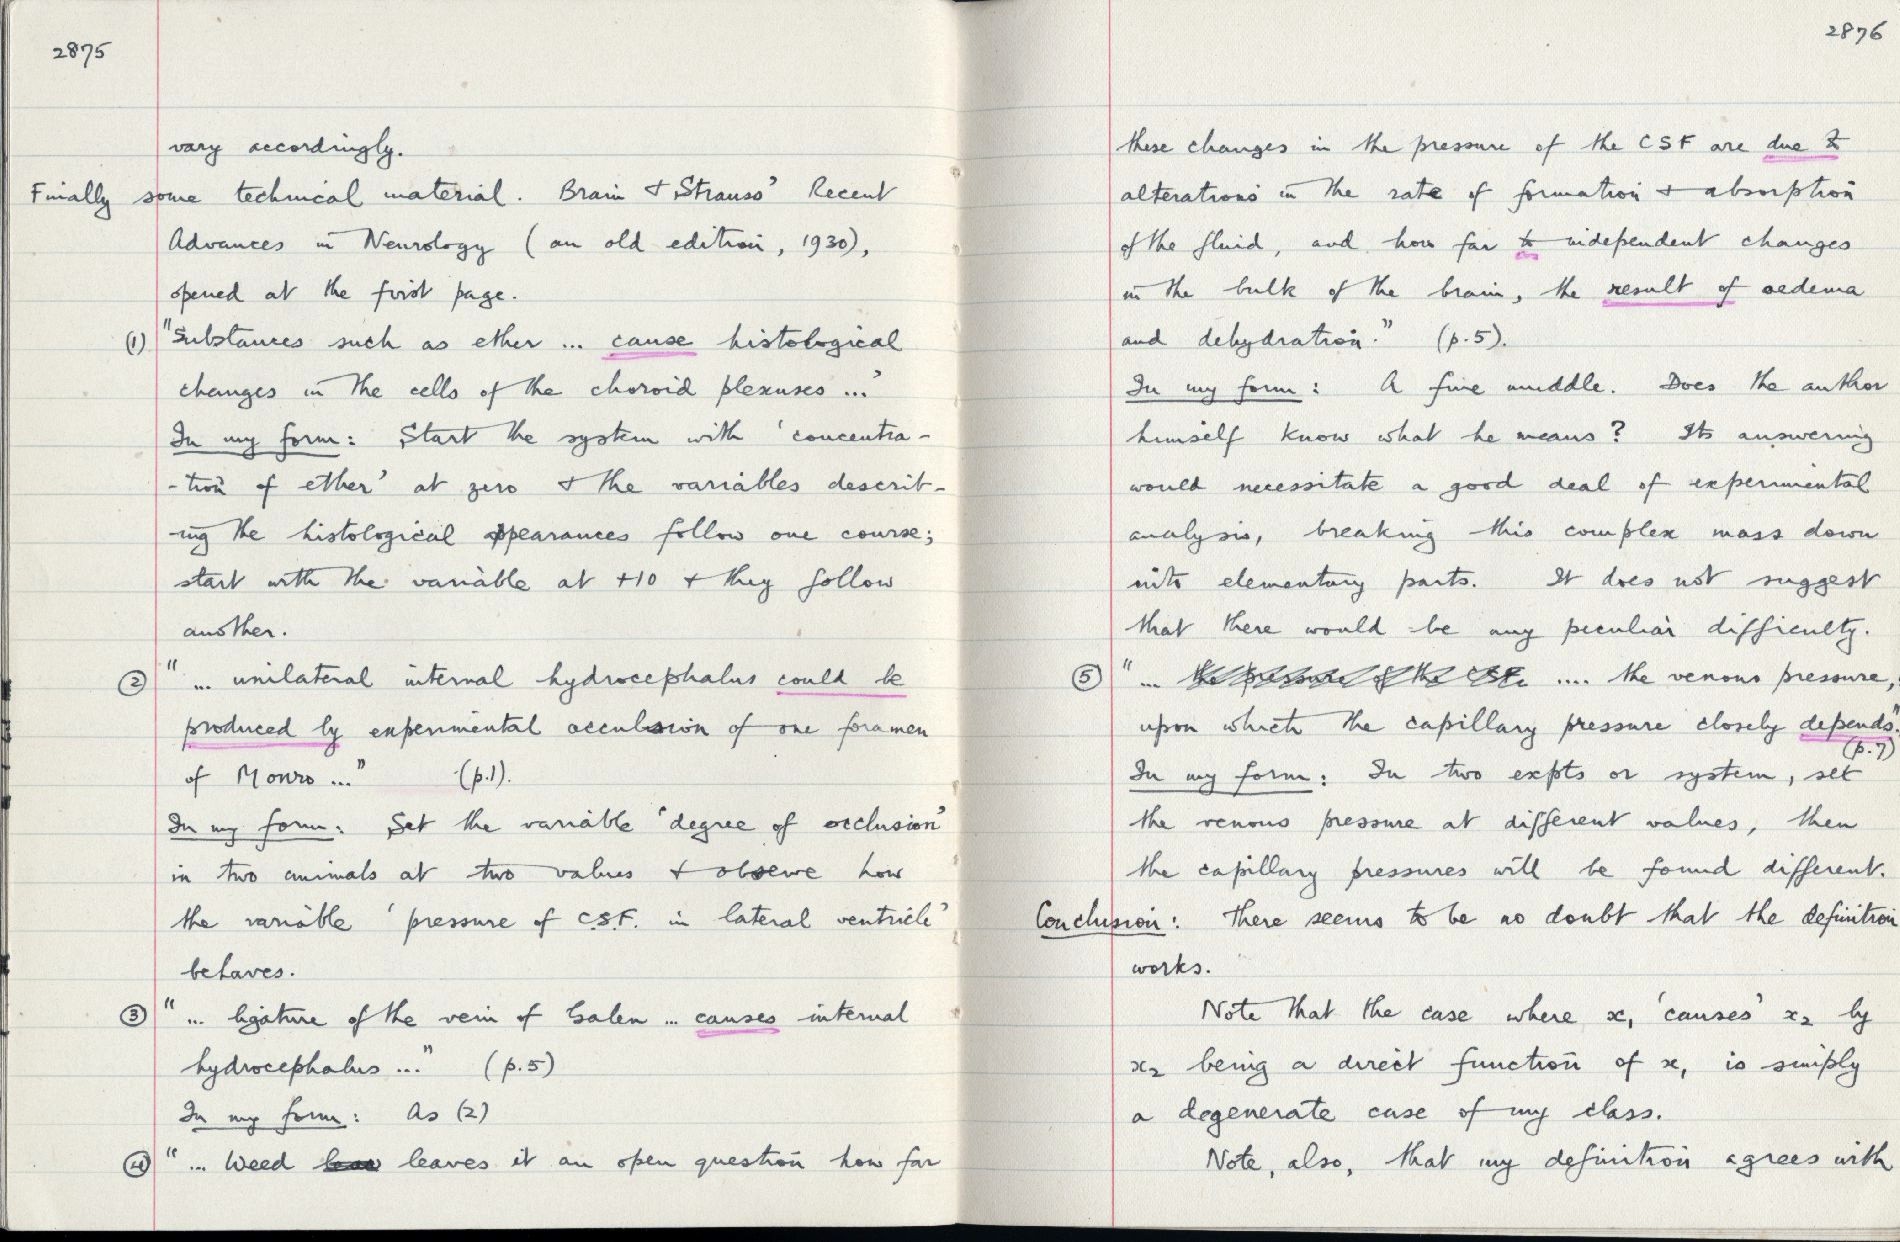 2875
vary accordingly.
Finally some technical material. Brain & Strauss' Recent
Advances in Neurology (an old edition, 1930),
opened at the first page.
(1) "Substances such as ether ... cause histological
changes in the cells of the choroid plexuses ..."
In my form: Start the system with 'concentra-
-tion of ether' at zero & the variables describ-
-ing the histological appearances follow one course;
start with the variable at +10 & they follow
another.
(2) "... unilateral internal hydrocephalus could be
produced by experimental occulsion of one foramen
of Monro ..." (p.1).
In my form: Set the variable 'degree of occlusion'
in two animals at two values & observe how
the variable 'pressure of C.S.F. in lateral ventricle'
behaves.
(3) "... ligature of the vein of Galen ... causes internal
hydrocephalus ..." (p.5)
In my form: As (2)
(4) "... Weed leaves it an open question how far
2876
these changes in the pressure of the CSF are due to
alterations in the rate of formation & absorption
of the fluid, and how far to independent changes
in the bulk of the brain, the result of oedema
and dehydration." (p.5).
In my form: A fine muddle. Does the author
himself know what he means? Its answering
would necessitate a good deal of experimental
analysis, breaking this complex mass down
into elementary parts. It does not suggest
that there would be any peculiar difficulty.
(5) "... the pressure of the CSF .... the venous pressure,
upon which the capillary pressure closely depends".
(p.7)
In my form: In two expts or system, set
the venous pressure at different values, then
the capillary pressures will be found different.
Conclusion: There seems to be no doubt that the definition
works.
Note that the case where x₁ 'causes' x₂ by
x₂ being a direct function of x₁ is simply
a degenerate case of my class.
Note, also, that my definition agrees with